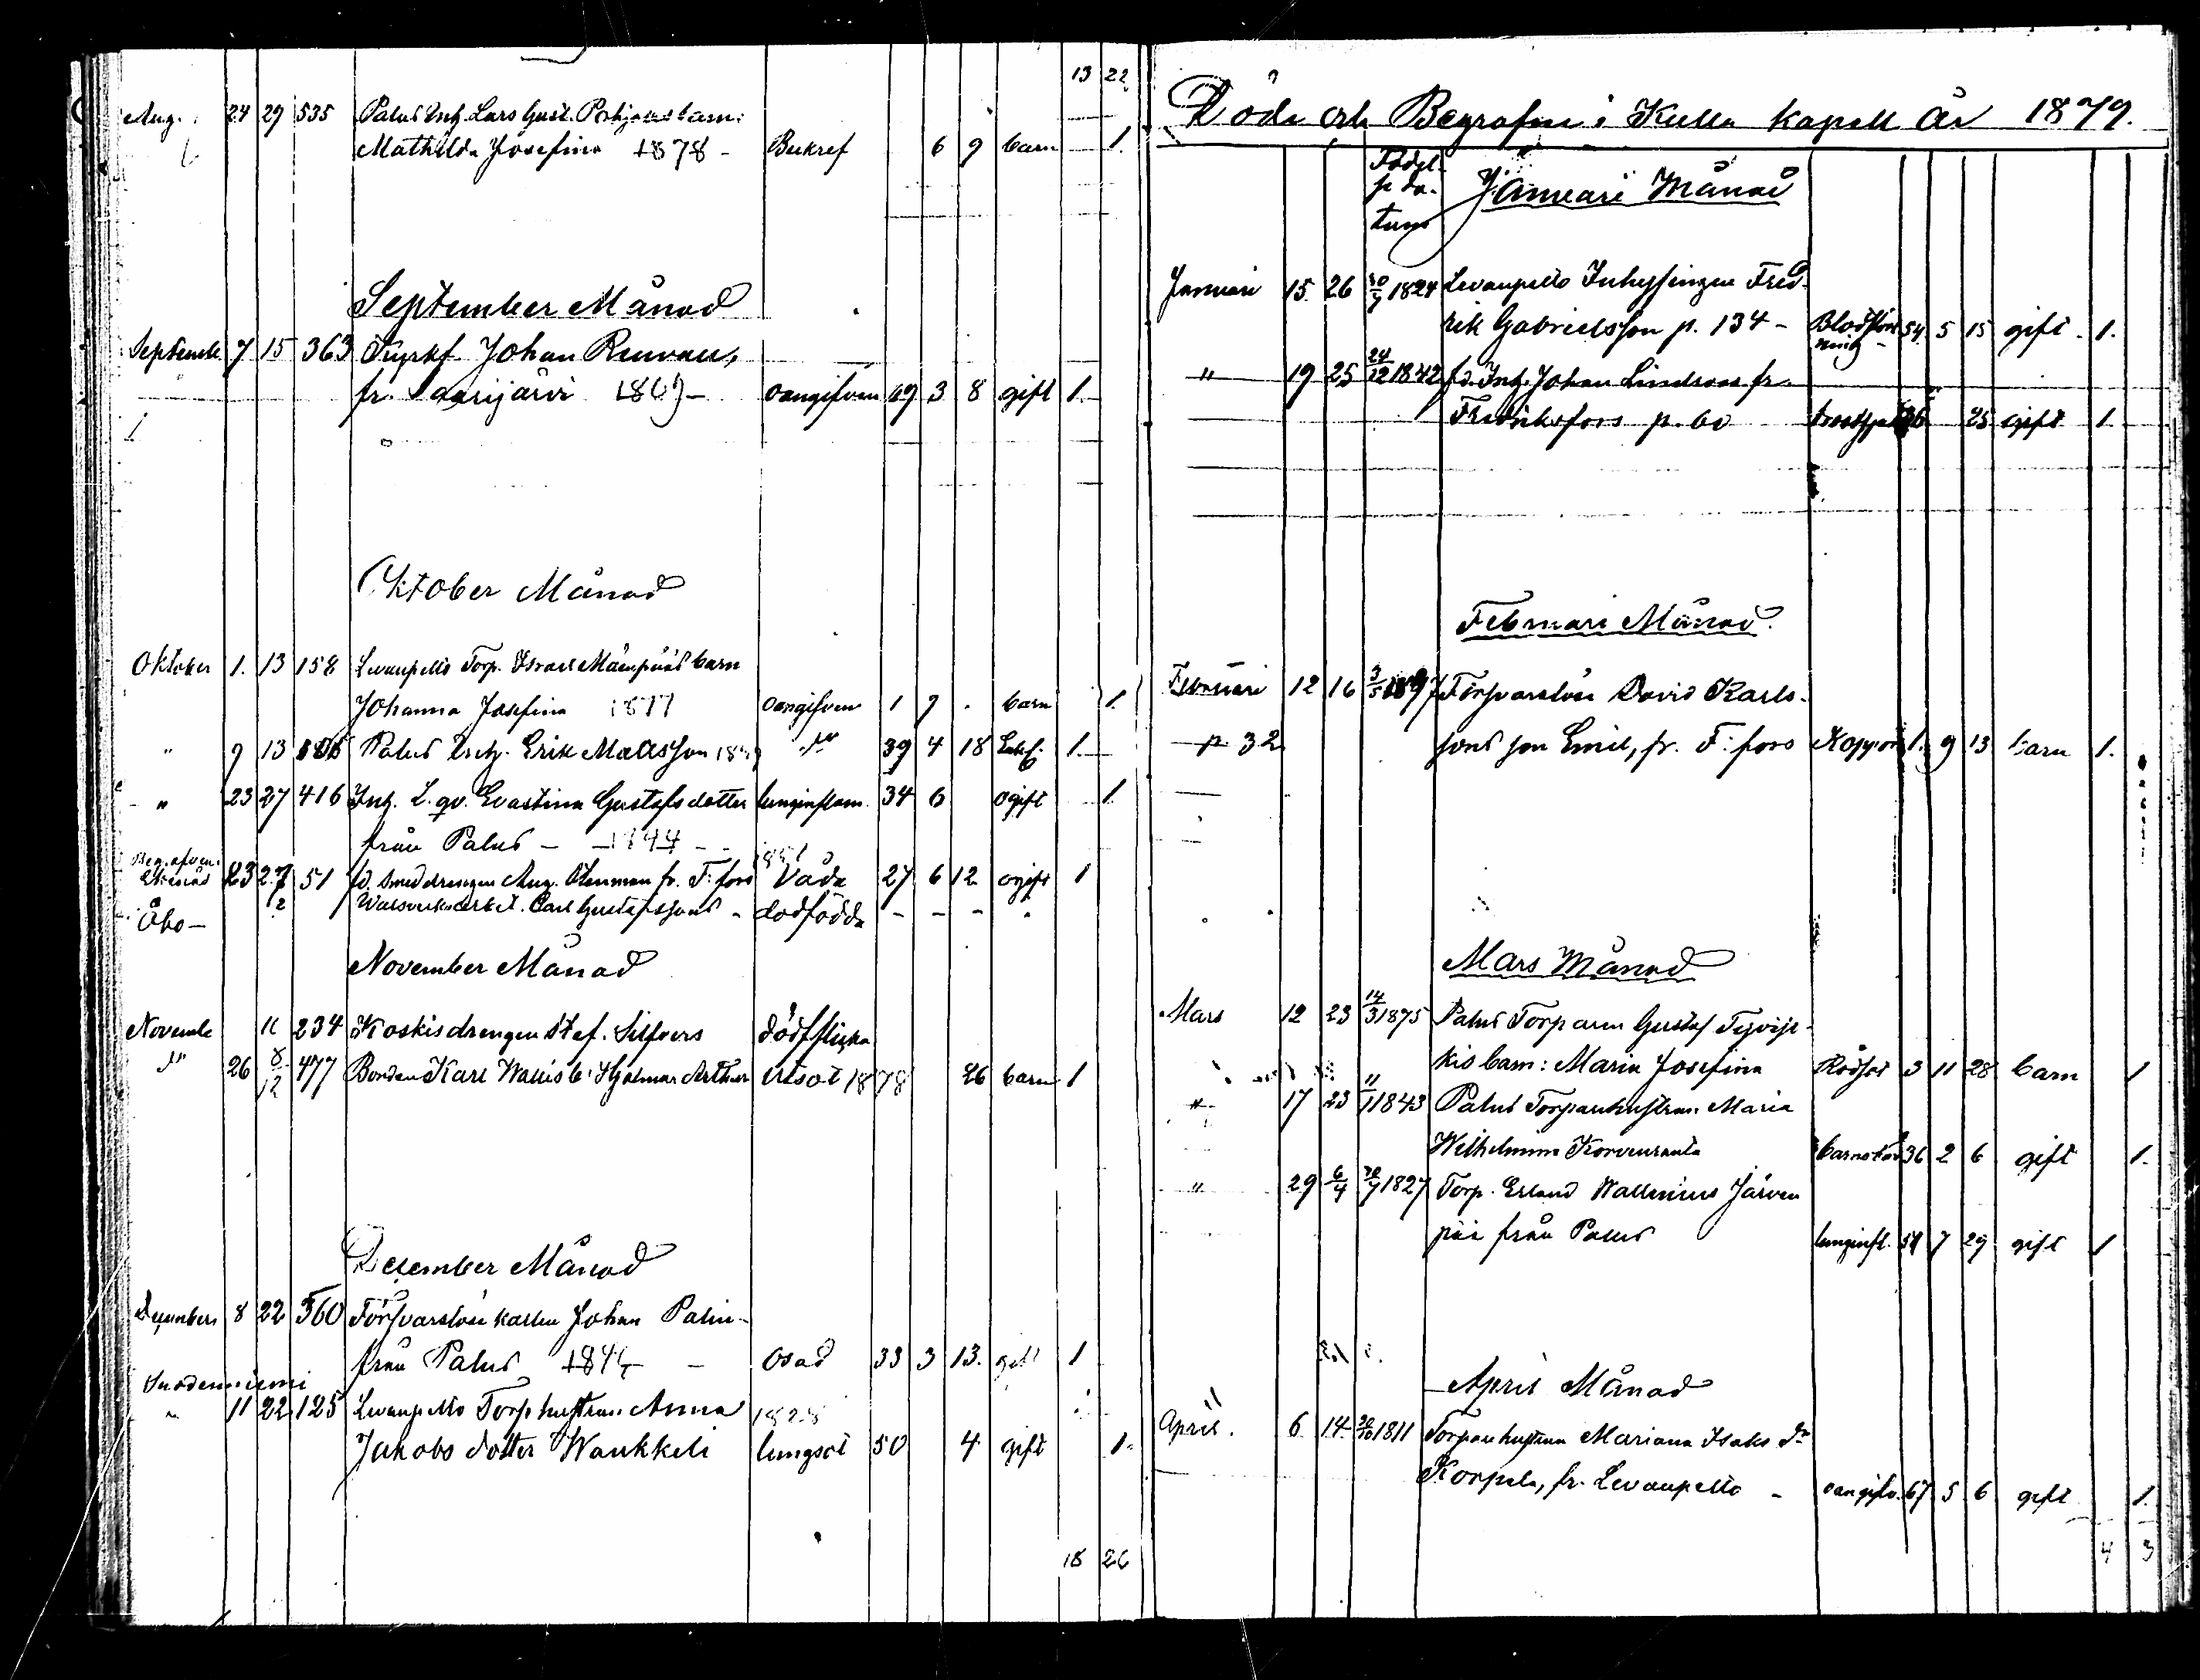 13 22
Aug. 24 29 535 Palus Inh. Lars Gust. Pohjalas barn:
Mathilda Josefina 1878 - Bukref 6 9 barn 1.
September Månad
Septemb. 7 15 363 Kyrkf. Johan
fr. Saarijärvi - oangifven 69 3 8 gift 1.
Oktober Månad
Oktober 1. 13 158 Levanpelto Torp. Israel Mäenpääs barn
Johanna Josefina 1877 oangifven 1 9 barn 1.
" 9 13 Palus Inh. Erik Mattsson " 39 4 18 1.
" 23 27 416 Inh. L. qv. Evastina Gustafsdotter lunginflam. 34 6 ogift 1.
från Palus - 1844 -
Ekenäs 23 27 51 fd. smeddrengen Aug. fr. F: fors Våda 27 6 12 ogift 1
Åbo - 2 Walsverksarbet. Carl Gustafssons - dödfödda - - -
November Månad
Novemb. 11 234 Koskis drengen Stef. Silfvers dödf flicka
" 26 8/12 477 Bonden Karl Wallis b: Hjalmar Arthur 1878 26 barn 1
December Månad
Decembers 8 22 360 Försvarslöse karlen Johan Palin-
från Palus - osad 33 3 13. gift 1
Suodenniemi
" 11 22 125 Levanpelto Torp hustrun Anna 1828
Jakobs dotter Wankkeli lungsot 50 4 gift 1.
18 26
Döde och Begrafne i Kulla kapell År 1879.
Födel-
se da-
tum
Januari Månad
Januari 15 26 30/7 1824 Levanpelto Inhysingen Fred-
rik Gabrielsson p. 134 - Blodförs 54 5 15 gift 1.
" 19 25 24/12 1842 fd. Inh. Johan Lindroos fr.
Fredriksfors p. 60 36 25 gift 1.
Februari Månad.
Februari 12 16 Försvarslöse David Karls-
p 32 sons son Emil, fr. F: fors Koppor 1. 9 13 barn 1.
Mars Månad
Mars 12 23 14/3 1875 Palus Torparen Gustaf
kis barn: Maria Josefina Rödsot 3 11 28 barn 1
" 17 23 11/1 1843 Palus Torparehustrun Maria
Wilhelmina Korvenranta barnsbörd 36 2 6 gift 1.
" 29 6/4 1827 Torp. Erland Wallenius Järven
pää från Palus lunginfl. 51 7 29 gift 1
April Månad
April. 6 14 30/10 1811 Torparehustrun Mariana Isaks dr
Korpela, fr. Levanpelto - oangifv. 67 5 6 gift 1.
4 3